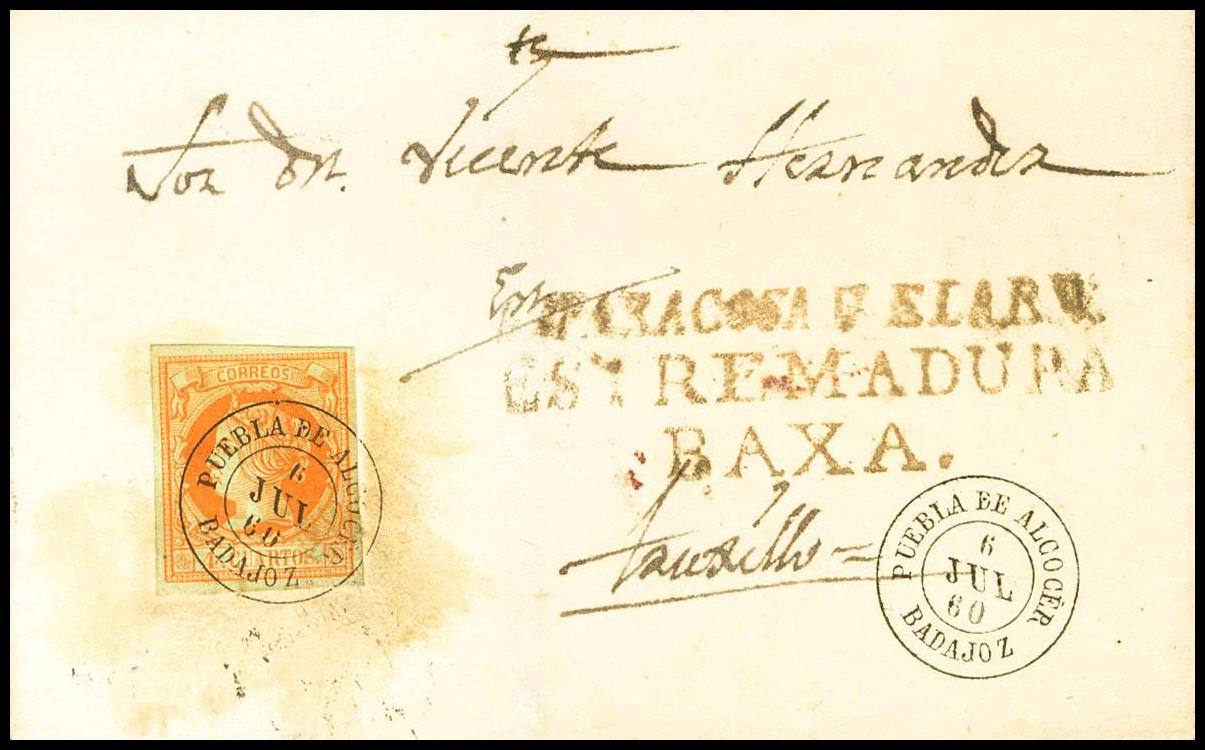 Sor Dn. Vicente Hernandez
ESTREMADURA
BAXA.
CORREOS
CUARTOS
PUEBLA DE ALCOCER
6
JUL
60
BADAJOZ
PUEBLA DE ALCOCER
6
JUL
60
BADAJOZ